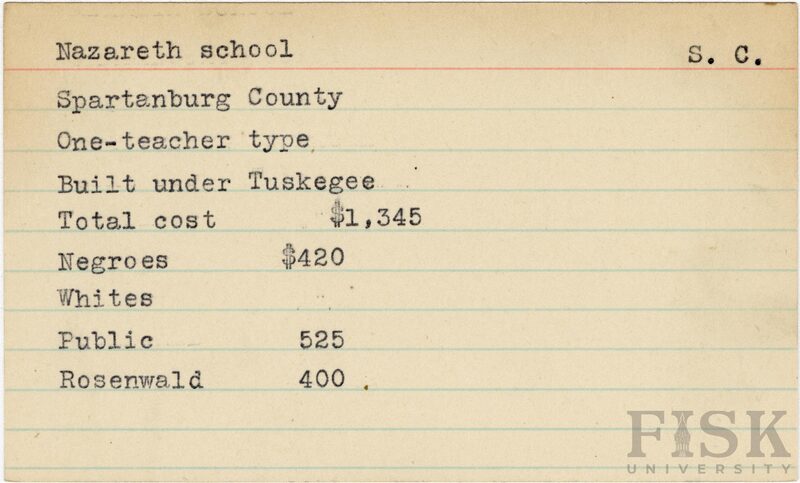 Nazareth school S. C.
Spartanburg County
One-teacher type
Built under Tuskegee
Total cost $1,345
Negroes $420
Whites
Public 525
Rosenwald 400
FISK
UNIVERSITY